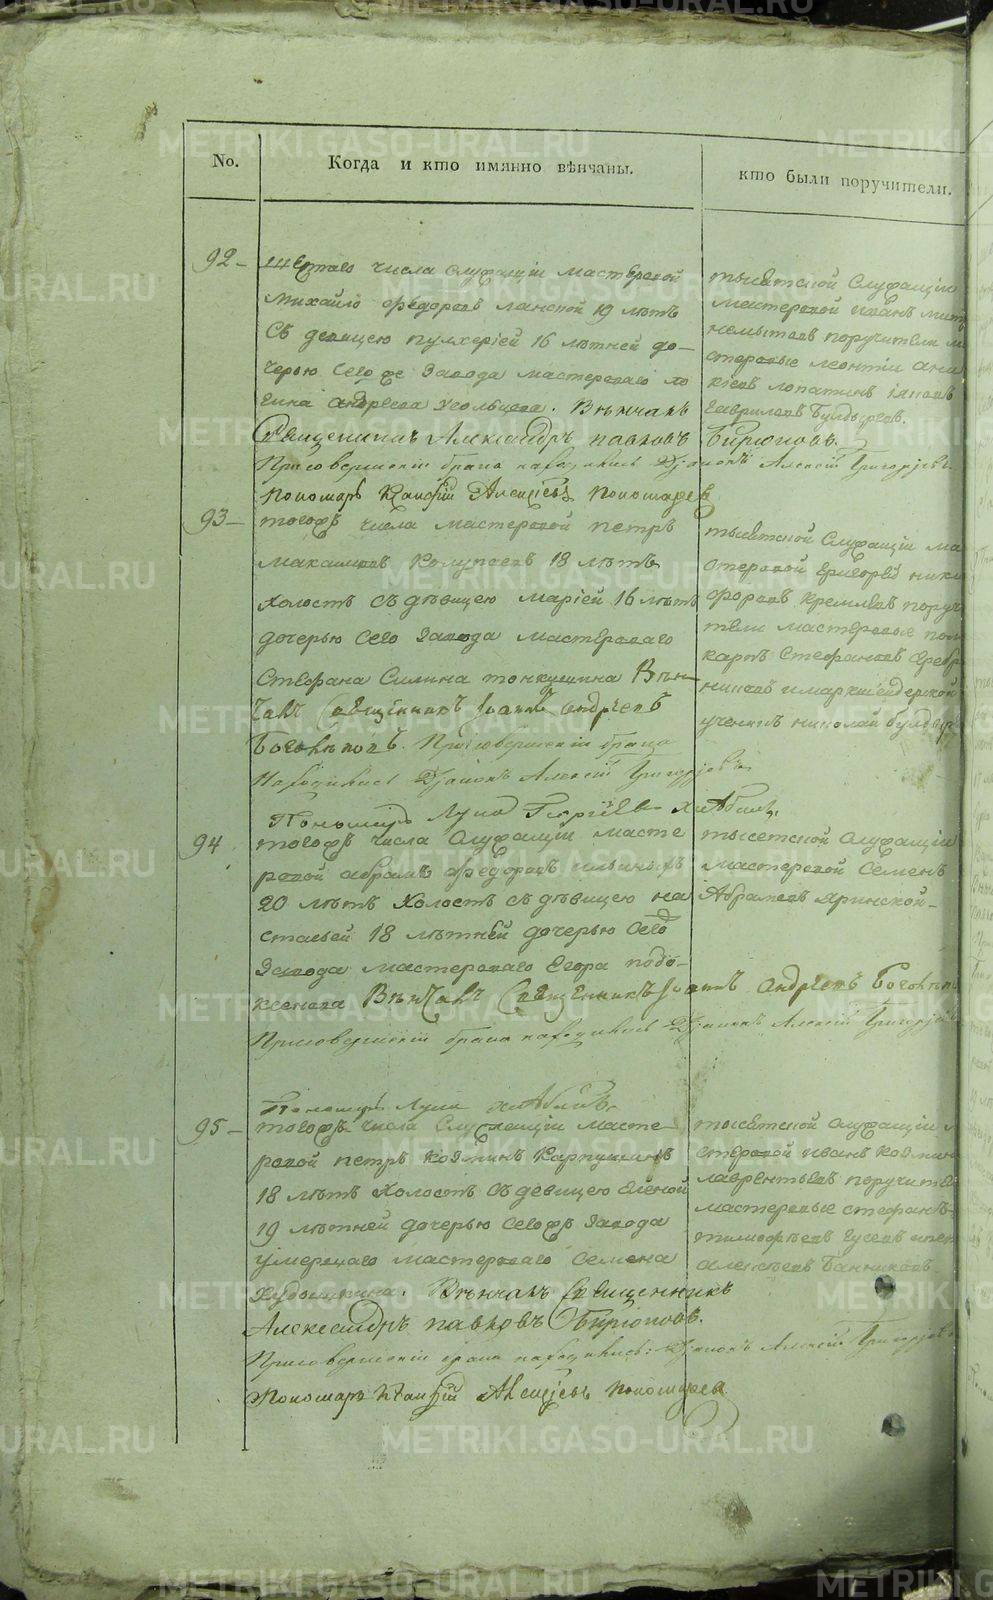 No.
Когда и кто имянно вѣнчаны.
кто были поручители.
92 –
числа служащiи мастеровой
Михайло Федоровъ Ланской 19 лѣтъ
Съ девицею пулхерiей 16 летней до–
черью Сего же Завода мастероваго
андреева Усольцева. Вѣнчалъ
Священникъ Александръ павловъ Бирюковъ
При совершенiи брака находились Дьяконъ Алексiй Григорьевъ
пономарь Алексѣевъ пономаревъ
тысетской Служащiи
мастеровой иванъ
поручители
стеровые леонтiи
лопатинъ
Гавриловъ Булдыревъ.
93 –
тогожъ числа мастеровой петръ
максимовъ Колупаевъ 18 лѣтъ
холостъ съ дѣвицею марiей 16 лѣтъ
дочерью Сего Завода мастероваго
Стефана Силина тонкушина Вѣн–
чалъ Священникъ Iоаннъ андреевъ
Боголѣповъ. При совершенiи брака
Находились Дьяконъ Алексiй Григорьевъ
Пономарь Лука Георгiевъ
тысетской Служащiи ма
стеровой григорей ники
форовъ Кремлевъ поручи
тели мастеровые поли
карпъ Стефановъ Серебр
никовъ имаркшейдерской
ученикъ николай булдыр
94
тогожъ числа Служащiи масте
ровой абрамъ Федоровъ ильиныхъ
20 лѣтъ холостъ съ дѣвицею на
стасьей 18 лѣтней дочерью Сего
Завода мастероваго Егора подо–
ксенова Вѣнчалъ Священникъ Iоаннъ андреевъ Боголѣповъ
При совершенiи брака находились Дьяконъ Алексiй Григорьевъ
Пономарь Лука
тысетской Служащiи
мастеровой Семенъ
Абрамовъ яринской –
95 –
тогожъ числа Служащiи масте–
ровой петръ козминъ Карпушинъ
18 лѣтъ холостъ съ девицею Еленой
19 лѣтней дочерью Сегожъ Завода
умершаго мастероваго Семена
Худошкина. Вѣнчалъ Священникъ
Александръ павловъ Бирюковъ.
При совершенiи брака находились: Дьяконъ Алексiй Григорьевъ
Пономарь Алексѣевъ пономаревъ
тысетской Служащiи м
стеровой иванъ козмин
лаврентьевъ поручите
мастеровые стефанъ
тимофѣевъ Гусевъ
алексѣевъ Банниковъ
METRIKI.GASO-URAL.RU